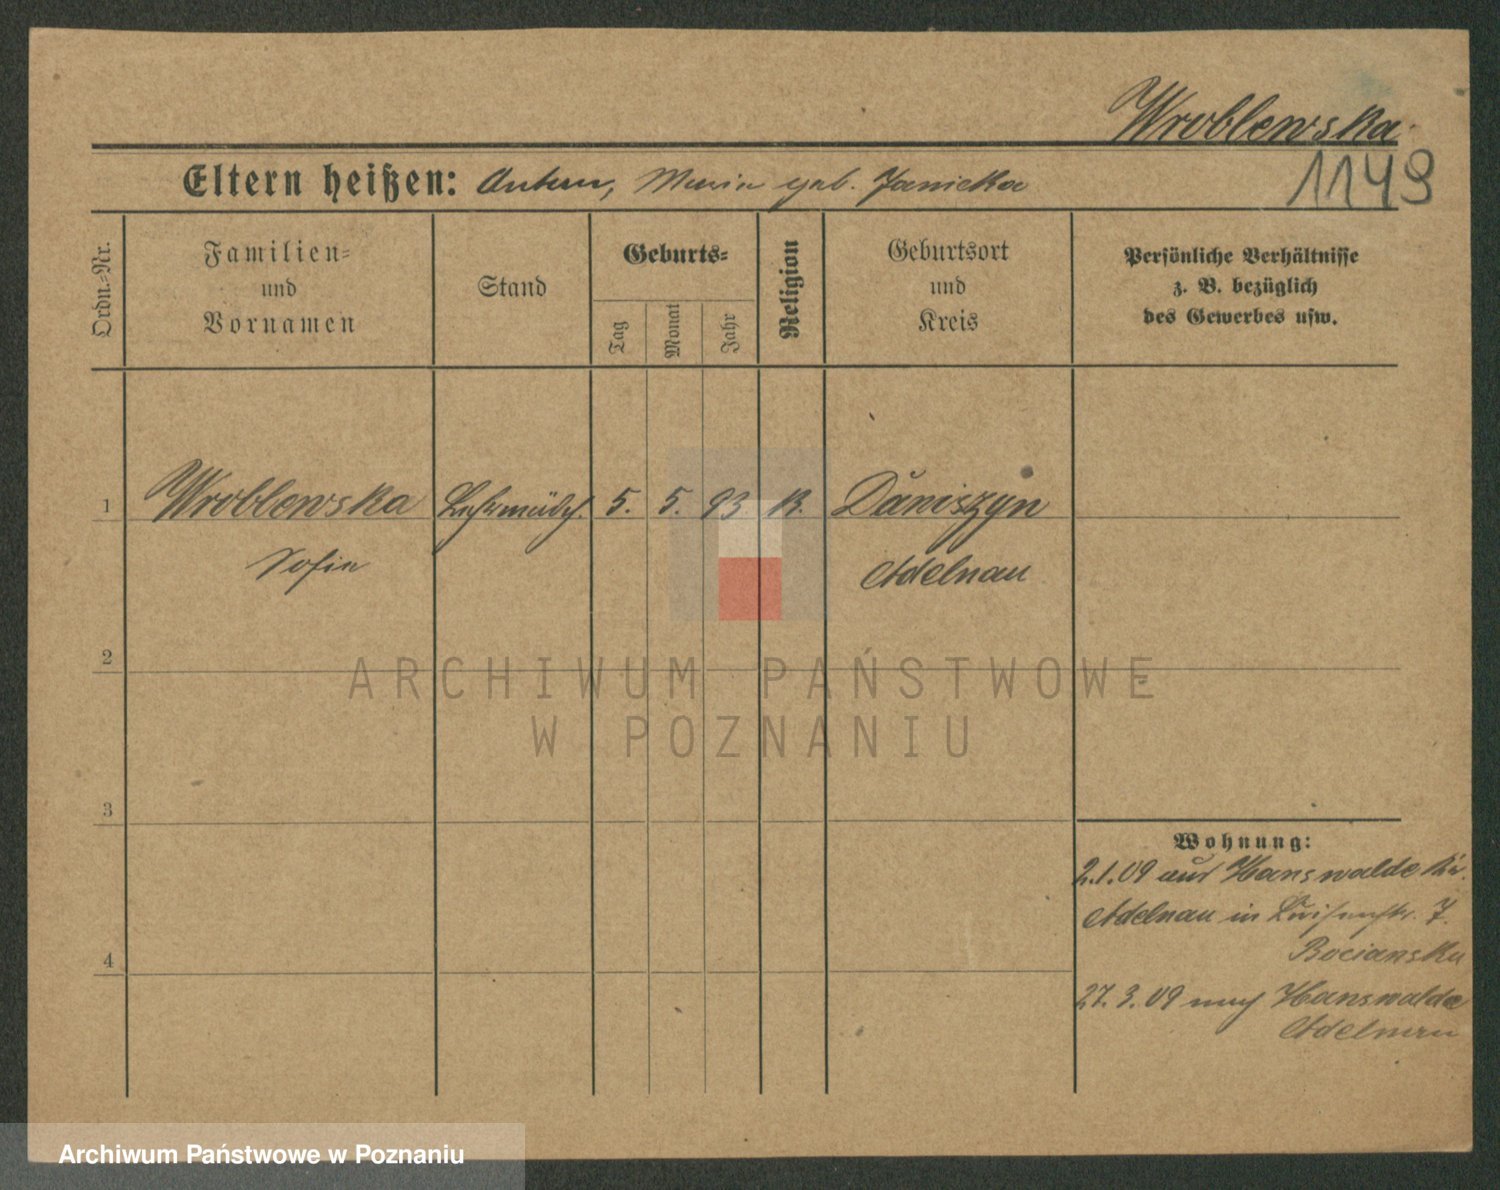 Wroblewska
1149
Eltern heißen: Anton, Maria geb. Janicka
Ordn.=Nr.
Familien=
und
Vornamen
Stand
Geburts=
Tag
Monat
Jahr
Religion
Geburtsort
und
Kreis
Persönliche Verhältnisse
z. B. bezüglich
des Gewerbes usw.
1 Wroblewska Lehrmädch. 5. 5. 93 K. Daniszyn
Sofie Adelnau
2
ARCHIWUM PAŃSTWOWE
W POZNANIU
3
Wohnung:
2.1.09 aus Hanswalde Kr.
Adelnau in Luisenstr. 7.
Bocianska
4
27.3.09 nach Hanswalde
Adelnau
Archiwum Państwowe w Poznaniu